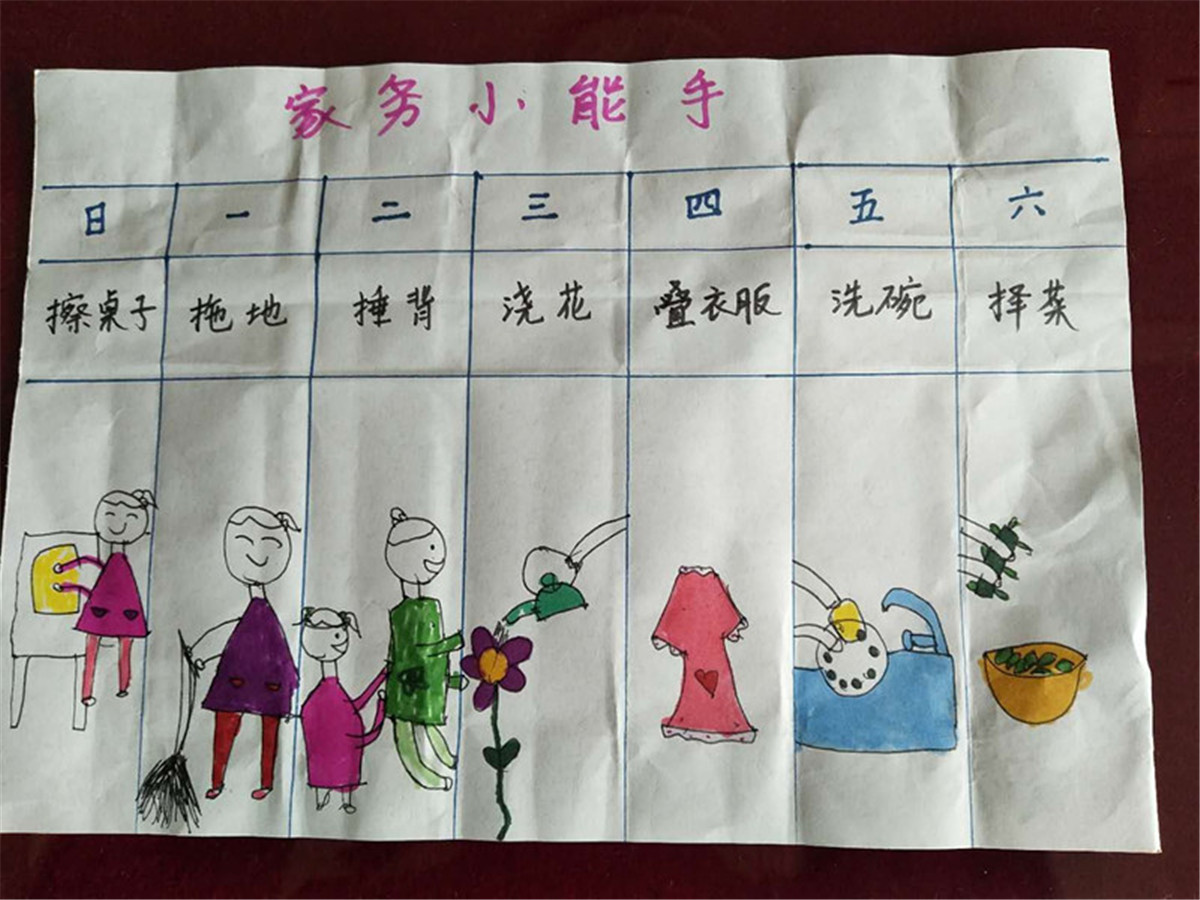 家务小能手
日 一 二 三 四 五 六
擦桌子 拖地 捶背 浇花 叠衣服 洗碗 择菜